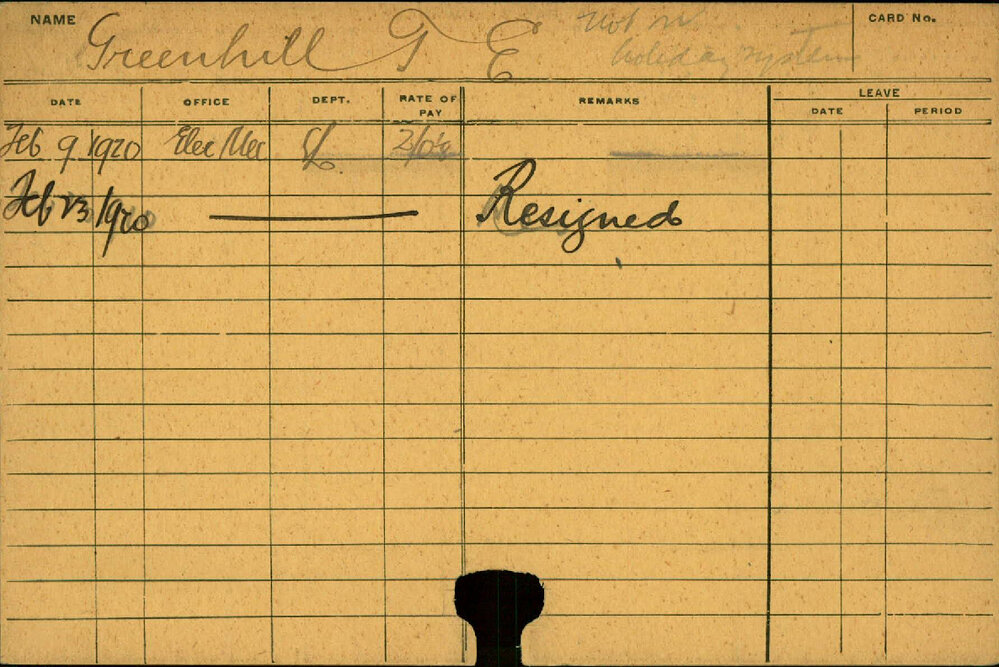 NAME Greenhill T E Not in CARD No.
holiday system
DATE OFFICE DEPT. RATE OF PAY REMARKS LEAVE
DATE PERIOD
Feb 9 1920 Elec Mec
Feb 23/1920 Resigned